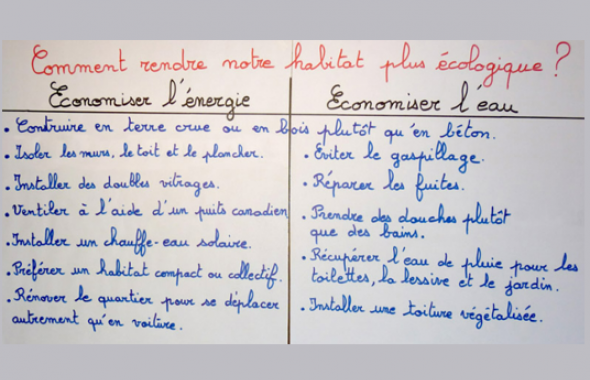 Comment rendre notre habitat plus écologique ?
Economiser l'énergie
• Construire en terre crue ou en bois plutôt qu'en béton.
• Isoler les murs, le toit et le plancher.
• Installer des doubles vitrages.
• Ventiler à l'aide d'un puits canadien
• Installer un chauffe-eau solaire.
• Préférer un habitat compact ou collectif.
• Rénover le quartier pour se déplacer
autrement qu'en voiture.
Economiser l'eau
• Eviter le gaspillage.
• Réparer les fuites.
• Prendre des douches plutôt
que des bains.
• Récupérer l'eau de pluie pour les
toilettes, la lessive et le jardin.
• Installer une toiture végétalisée.